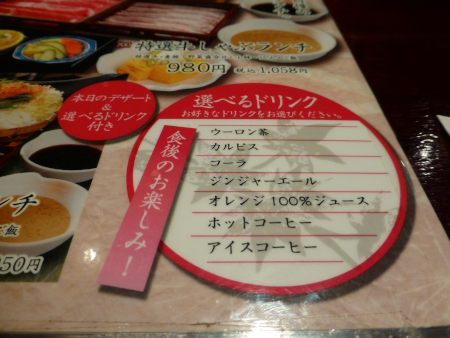 特選牛しゃぶランチ
980円 税込1,058円
本日のデザート
&
選べるドリンク
付き
選べるドリンク
お好きなドリンクをお選びください。
ウーロン茶
カルピス
コーラ
ジンジャーエール
オレンジ100%ジュース
ホットコーヒー
アイスコーヒー
食後のお楽しみ!
ンチ
飯
50円